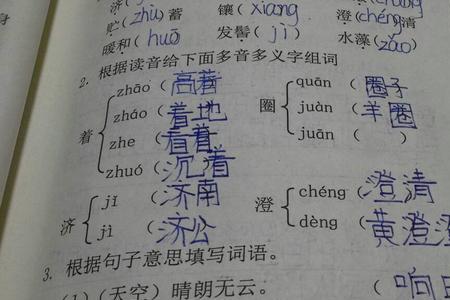 济(
贮(zhù)蓄 镶(xiang 澄(chéng)清
暖和(huō) 发髻(jì) 水藻(zǎo)
2. 根据读音给下面多音多义字组词
着 zhāo(高着 圈 quān(圈子
zháo(着地 juàn(羊圈
zhe(看着 juān( )
zhuó(沉着
济 jǐ(济南 澄 chéng(澄清
jì(济公 dèng(黄澄澄
3. 根据句子意思填写词语。
(1)(天空)晴朗无云。 (响